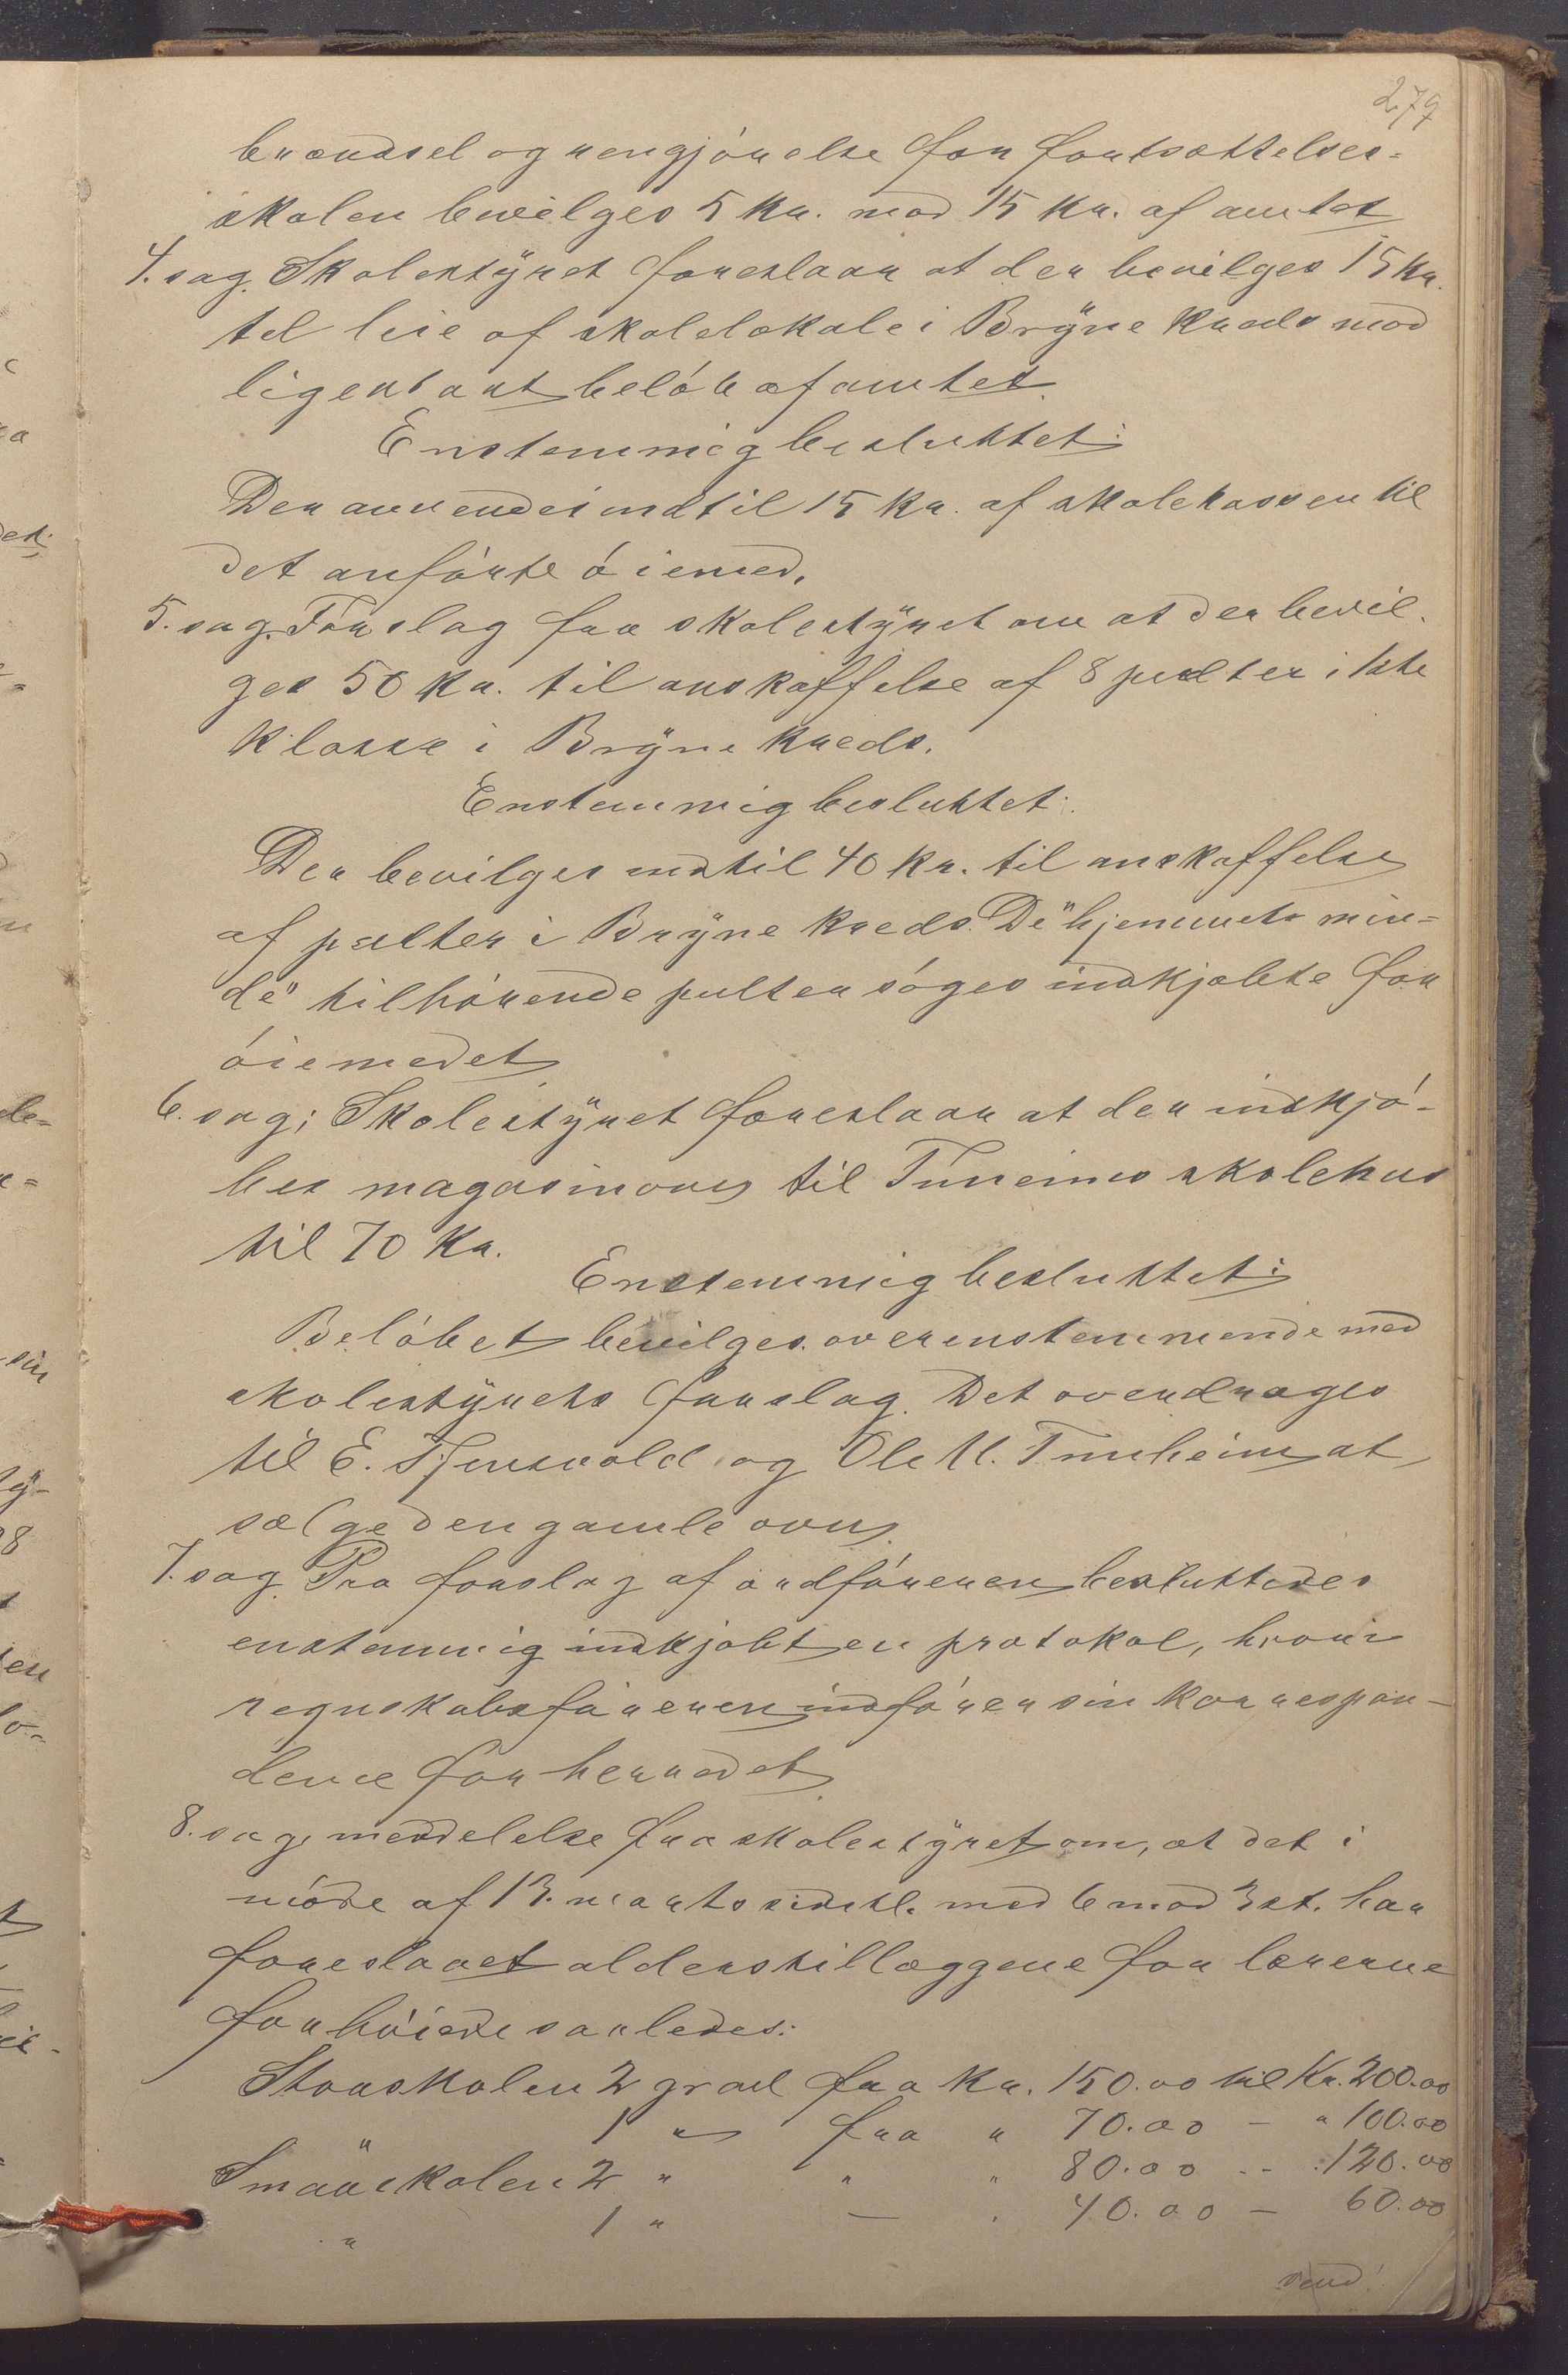 279
brændsel og rengjórelse for fortsættelses-
skolen bevilges 5 kr. mod 15 kr. af amtet
4. sag. Skolestÿret foreslaar at der bevilges 15 kr.
til leie af skolelokale i Brÿne kreds mod
ligestort belób af amtet.
Enstemmig besluttet:
Der anvendes indtil 15 kr. af skolekassen til
det anfórte óiemed.
5. sag. Forslag fra skolestÿret om at der bevil-
ges 50 kr. til anskaffelse af 8 pulter i 1ste
klasse i Brÿne kreds.
Enstemmig besluttet:
Der bevilges indtil 40 kr. til anskaffelse
af pulter i Brÿne kreds. De "hjemmets min-
de" tilhórende pulter sóges indkjøbte for
óiemedet
6. sag; Skolestÿret foreslaar at der indkjó-
bes magasinovn til Tuneims skolehus
til 70 Kr.
Enstemmig besluttet:
Belóbet bevilges overenstemmende med
skolestÿrets forslag. Det overdrages
til E. Tjensvold og Ole M. Tunheim at
sælge den gamle ovn.
7. sag. Paa forslag af ordfóreren besluttedes
enstemmig indkjøbt en protokol, hvori
regnskabsfóreren indfórer sin korrespon-
dence for herredet.
8. sag, meddelelse fra skolestÿret om, at det i
móde af 13. marts sidstl. med 6 mod 3 st. har
foreslaaet alderstillæggene for lærerne
forhóiede saaledes:
Storskolen 2 grad fra Kr. 150.00 til Kr. 200.00
" 1 " fra " 70.00 – " 100.00
Smaaskolen 2 " " " 80.00 - - 120.00
" 1 " — " 40.00 – 60.00
vend!